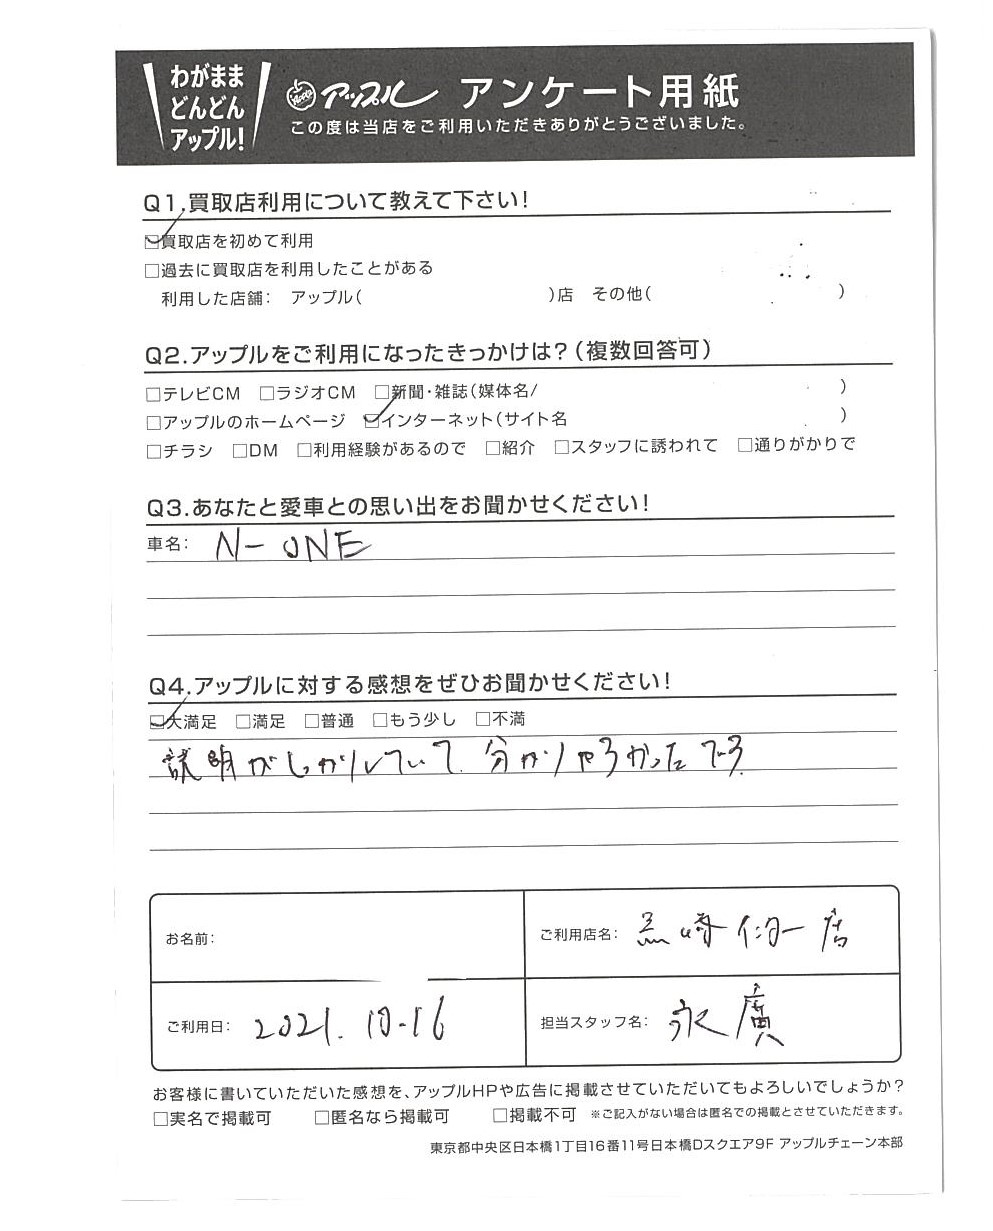 わがまま
どんどん
アップル!
アップル アンケート用紙
この度は当店をご利用いただきありがとうございました。
Q1.買取店利用について教えて下さい!
☑買取店を初めて利用
□過去に買取店を利用したことがある
利用した店舗: アップル( )店 その他( )
Q2.アップルをご利用になったきっかけは?(複数回答可)
□テレビCM □ラジオCM □新聞・雑誌(媒体名/ )
□アップルのホームページ ☑インターネット(サイト名 )
□チラシ □DM □利用経験があるので □紹介 □スタッフに誘われて □通りがかりで
Q3.あなたと愛車との思い出をお聞かせください!
車名: N-ONE
Q4.アップルに対する感想をぜひお聞かせください!
☑大満足 □満足 □普通 □もう少し □不満
説明がしっかりしていて、分かりやすかったです。
お名前:
ご利用店名: 店
ご利用日: 2021.10.16
担当スタッフ名: 永廣
お客様に書いていただいた感想を、アップルHPや広告に掲載させていただいてもよろしいでしょうか?
□実名で掲載可 □匿名なら掲載可 □掲載不可 ※ご記入がない場合は匿名での掲載とさせていただきます。
東京都中央区日本橋1丁目16番11号日本橋Dスクエア9F アップルチェーン本部